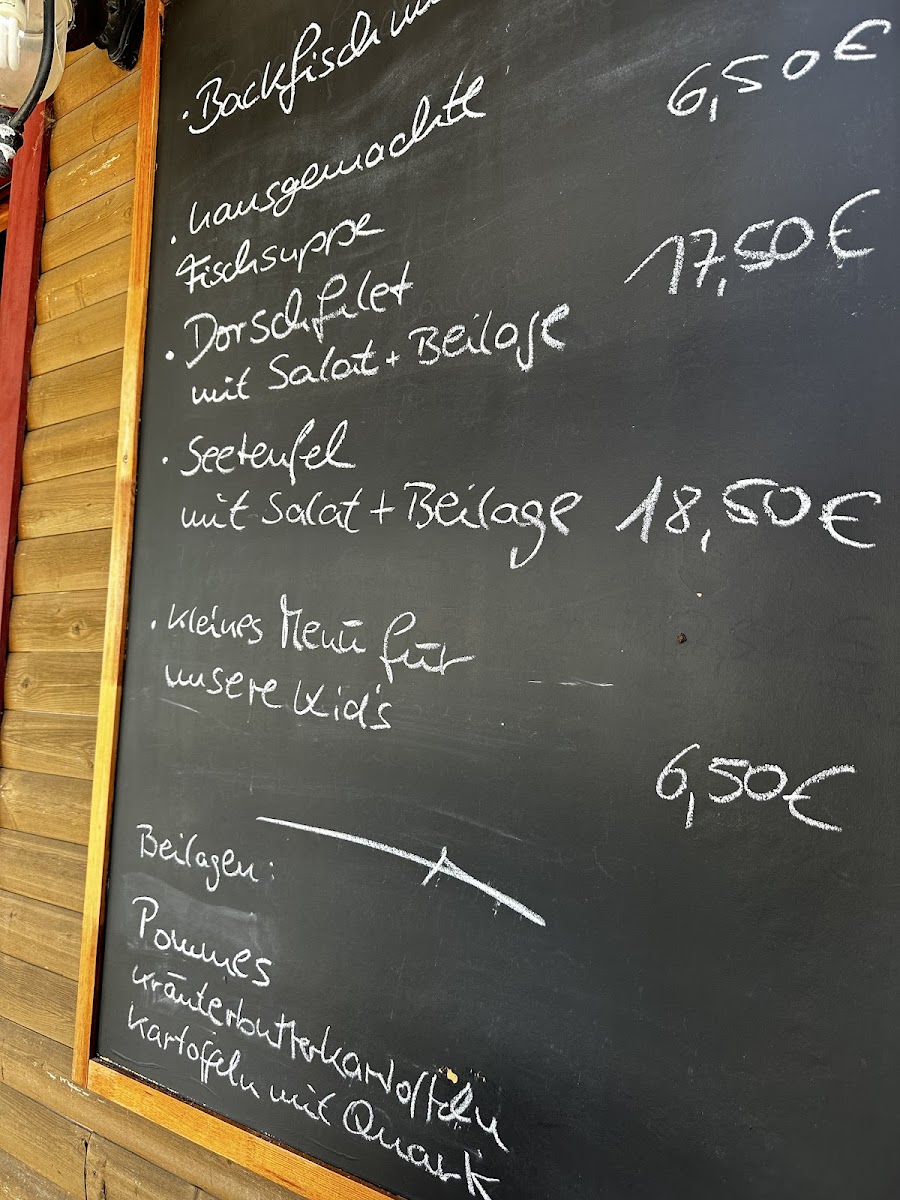 · Backfisch
· hausgemachte 6,50 €
Fischsuppe
· Dorschfilet 17,50 €
mit Salat + Beilage
· Seeteufel
mit Salat + Beilage 18,50 €
· kleines Menü für
unsere Kid's
6,50 €
Beilagen:
Pommes
Kräuterbutterkartoffeln
Kartoffeln mit Quark